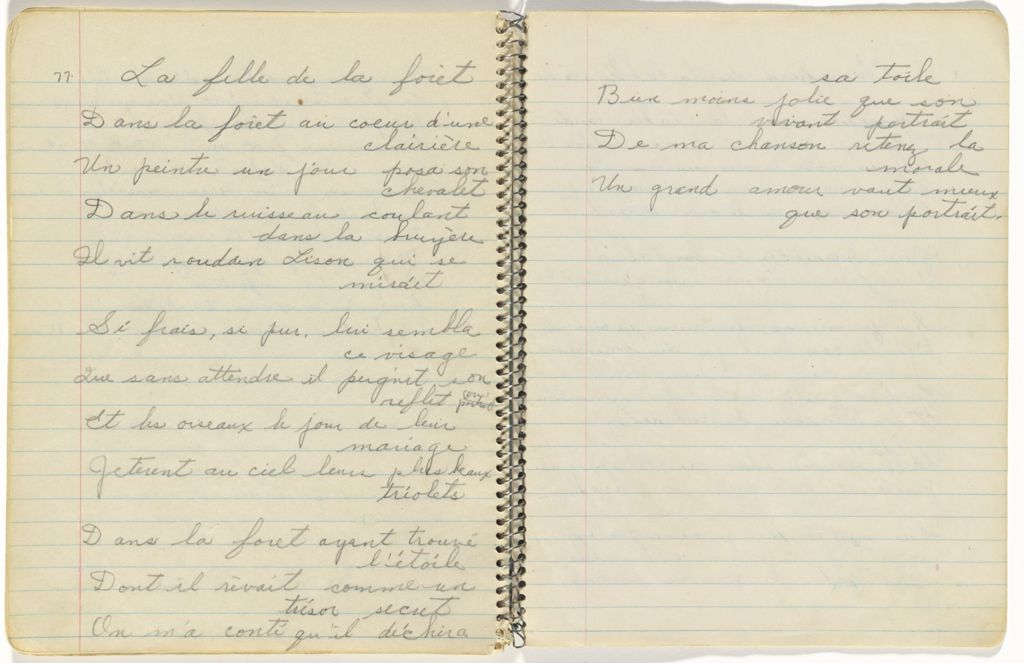 77. La fille de la foret
Dans la forêt au coeur d'une
clairière
Un peintre un jour posa son
chevalet
Dans le ruisseau coulant
dans la bruyère
Il vit soudain Lison qui se
mirait
Si frais, si pur, lui sembla
ce visage
Que sans attendre il peignit son
reflet
Et les oiseaux le jour de leur
mariage
Jeterent au ciel leurs plus beaux
triolets
Dans la foret ayant trouvé
l'étoile
Dont il rêvait comme un
trésor secret
On m'a conté qu'il déchira
sa toile
Bien moins jolie que son
vivant portrait
De ma chanson retenez la
morale
Un grand amour vaut mieux
que son portrait.